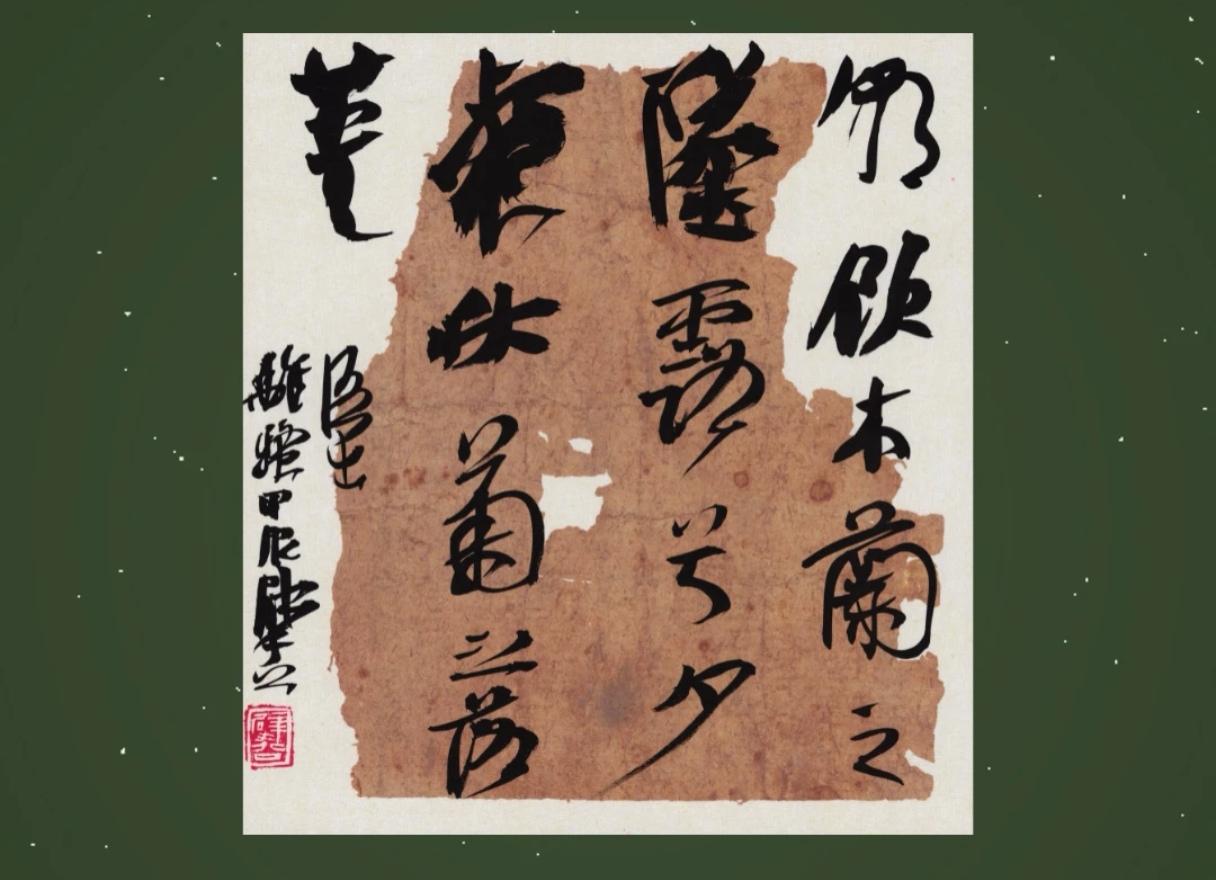 朝飲木蘭之
墜露兮夕
餐秋菊之落
英
屈子
離騷甲辰